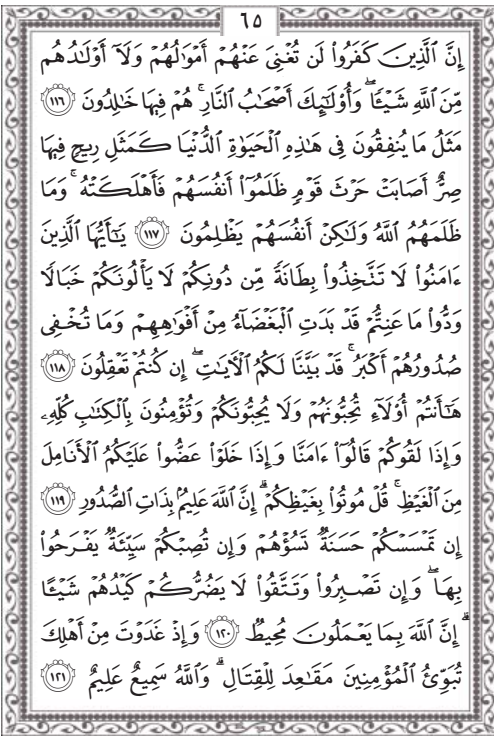 ٦٥
إِنَّ ٱلَّذِينَ كَفَرُوا۟ لَن تُغْنِىَ عَنْهُمْ أَمْوَٰلُهُمْ وَلَآ أَوْلَٰدُهُم
مِّنَ ٱللَّهِ شَيْـًٔا ۖ وَأُو۟لَٰٓئِكَ أَصْحَٰبُ ٱلنَّارِ ۚ هُمْ فِيهَا خَٰلِدُونَ ١١٦
مَثَلُ مَا يُنفِقُونَ فِى هَٰذِهِ ٱلْحَيَوٰةِ ٱلدُّنْيَا كَمَثَلِ رِيحٍ فِيهَا
صِرٌّ أَصَابَتْ حَرْثَ قَوْمٍ ظَلَمُوٓا۟ أَنفُسَهُمْ فَأَهْلَكَتْهُ ۚ وَمَا
ظَلَمَهُمُ ٱللَّهُ وَلَٰكِنْ أَنفُسَهُمْ يَظْلِمُونَ ١١٧ يَٰٓأَيُّهَا ٱلَّذِينَ
ءَامَنُوا۟ لَا تَتَّخِذُوا۟ بِطَانَةً مِّن دُونِكُمْ لَا يَأْلُونَكُمْ خَبَالًا
وَدُّوا۟ مَا عَنِتُّمْ قَدْ بَدَتِ ٱلْبَغْضَآءُ مِنْ أَفْوَٰهِهِمْ وَمَا تُخْفِى
صُدُورُهُمْ أَكْبَرُ ۚ قَدْ بَيَّنَّا لَكُمُ ٱلْءَايَٰتِ ۖ إِن كُنتُمْ تَعْقِلُونَ ١١٨
هَٰٓأَنتُمْ أُو۟لَآءِ تُحِبُّونَهُمْ وَلَا يُحِبُّونَكُمْ وَتُؤْمِنُونَ بِٱلْكِتَٰبِ كُلِّهِۦ
وَإِذَا لَقُوكُمْ قَالُوٓا۟ ءَامَنَّا وَإِذَا خَلَوْا۟ عَضُّوا۟ عَلَيْكُمُ ٱلْأَنَامِلَ
مِنَ ٱلْغَيْظِ ۚ قُلْ مُوتُوا۟ بِغَيْظِكُمْ ۗ إِنَّ ٱللَّهَ عَلِيمٌۢ بِذَاتِ ٱلصُّدُورِ ١١٩
إِن تَمْسَسْكُمْ حَسَنَةٌ تَسُؤْهُمْ وَإِن تُصِبْكُمْ سَيِّئَةٌ يَفْرَحُوا۟
بِهَا ۖ وَإِن تَصْبِرُوا۟ وَتَتَّقُوا۟ لَا يَضُرُّكُمْ كَيْدُهُمْ شَيْـًٔا
ۗ إِنَّ ٱللَّهَ بِمَا يَعْمَلُونَ مُحِيطٌ ١٢٠ وَإِذْ غَدَوْتَ مِنْ أَهْلِكَ
تُبَوِّئُ ٱلْمُؤْمِنِينَ مَقَٰعِدَ لِلْقِتَالِ ۗ وَٱللَّهُ سَمِيعٌ عَلِيمٌ ١٢١